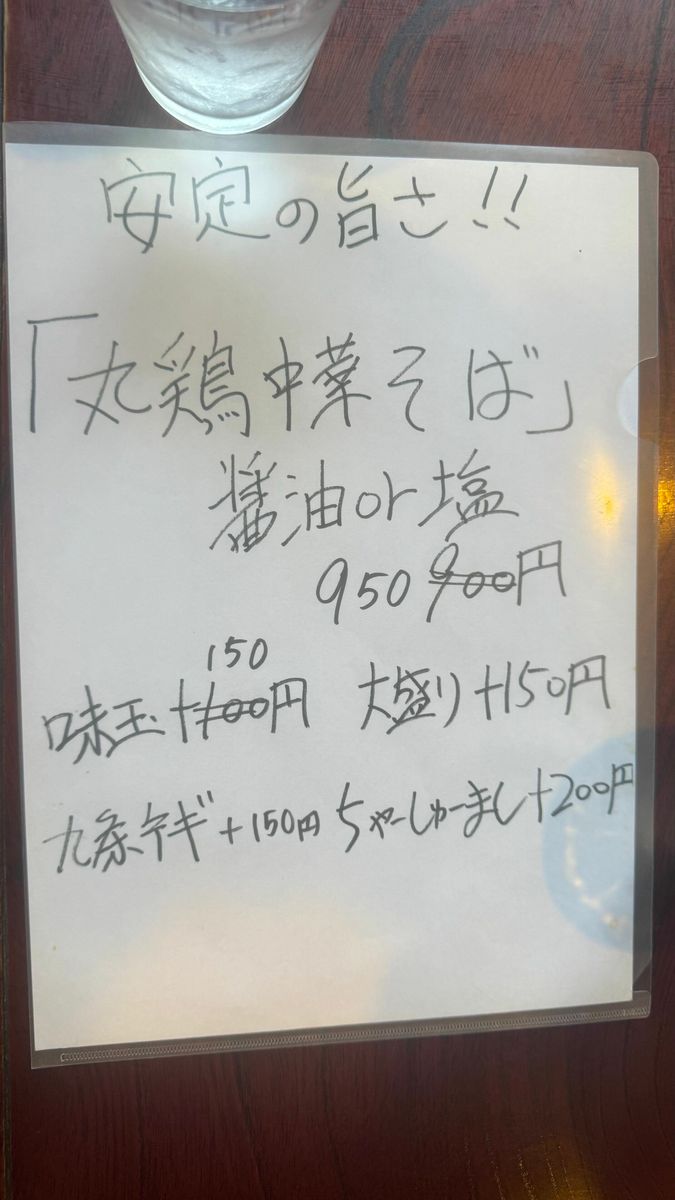 安定の旨さ!!
「丸鶏中華そば」
醤油or塩
950 900円
150
味玉+100円 大盛り+150円
九条ネギ+150円 ちゃーしゅーまし+200円